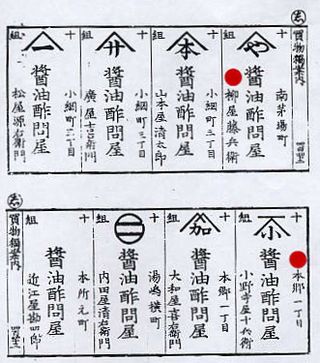 買物獨案内
十組
や
南茅場町
醬油酢問屋
柳屋藤兵衛
十組
本
小網町三丁目
醬油酢問屋
山本屋清太郎
十組
廿
小網町三丁目
醬油酢問屋
廣屋吉右衛門
十組
一
小網町二丁目
醬油酢問屋
松屋源右衛門
買物獨案内
十組
小
本郷一丁目
醬油酢問屋
小野寺屋十兵衛
十組
加
本郷一丁目
醬油酢問屋
大和屋喜右衛門
十組
二
湯嶋横町
醬油酢問屋
内田屋清右衛門
十組
本所元町
醬油酢問屋
近江屋勘四郎